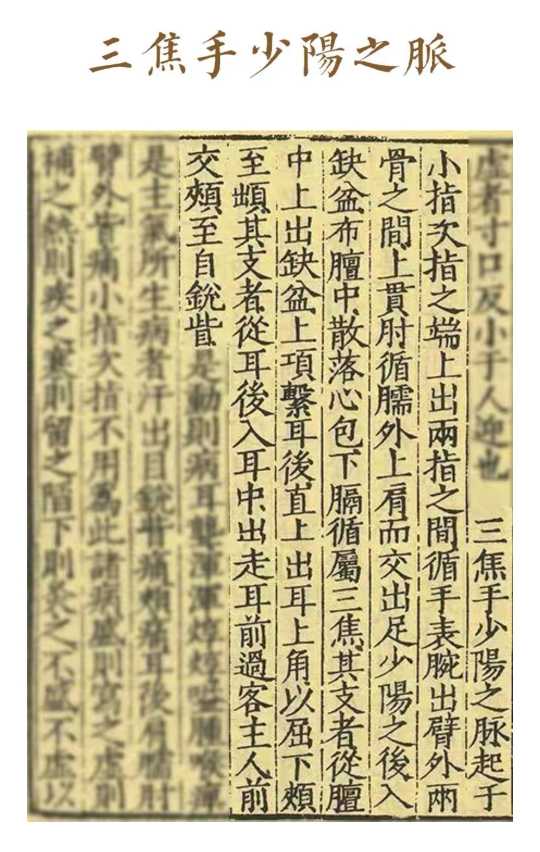 三焦手少陽之脈
虛者寸口反小于人迎也　三焦手少陽之脉起于
小指次指之端上出兩指之間循手表腕出臂外兩
骨之間上貫肘循臑外上肩而交出足少陽之後入
缺盆布膻中散落心包下膈循屬三焦其支者從膻
中上出缺盆上項繫耳後直上出耳上角以屈下頰
至䪼其支者從耳後入耳中出走耳前過客主人前
交頰至自銳眥是動則病耳聾渾渾焞焞嗌腫喉痺
是主氣所生病者汗出目銳眥痛頰痛耳後肩臑肘
臂外皆痛小指次指不用為此諸病盛則寫之虛則
補之熱則疾之寒則留之陷下則灸之不盛不虛以